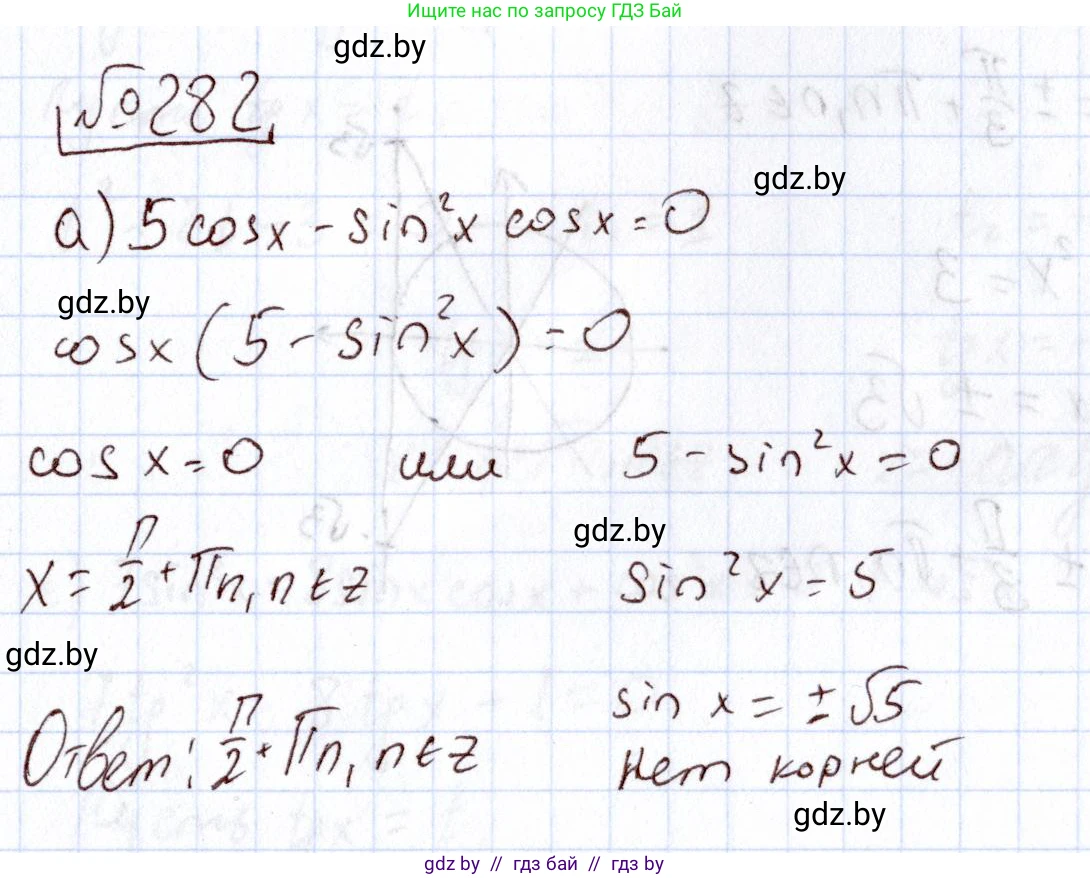 Ищите нас по запросу ГДЗ Бай
gdz.by
№282
gdz.by
а) 5 cosx - sin²x cosx = 0
gdz.by
cosx (5 - sin²x) = 0
cos x = 0 или 5 - sin²x = 0
gdz.by
x = π/2 + πn, n ∈ z sin²x = 5
gdz.by
sin x = ±√5
Ответ: π/2 + πn, n ∈ z нет корней
gdz.by
gdz by // гдз бай // гдз by